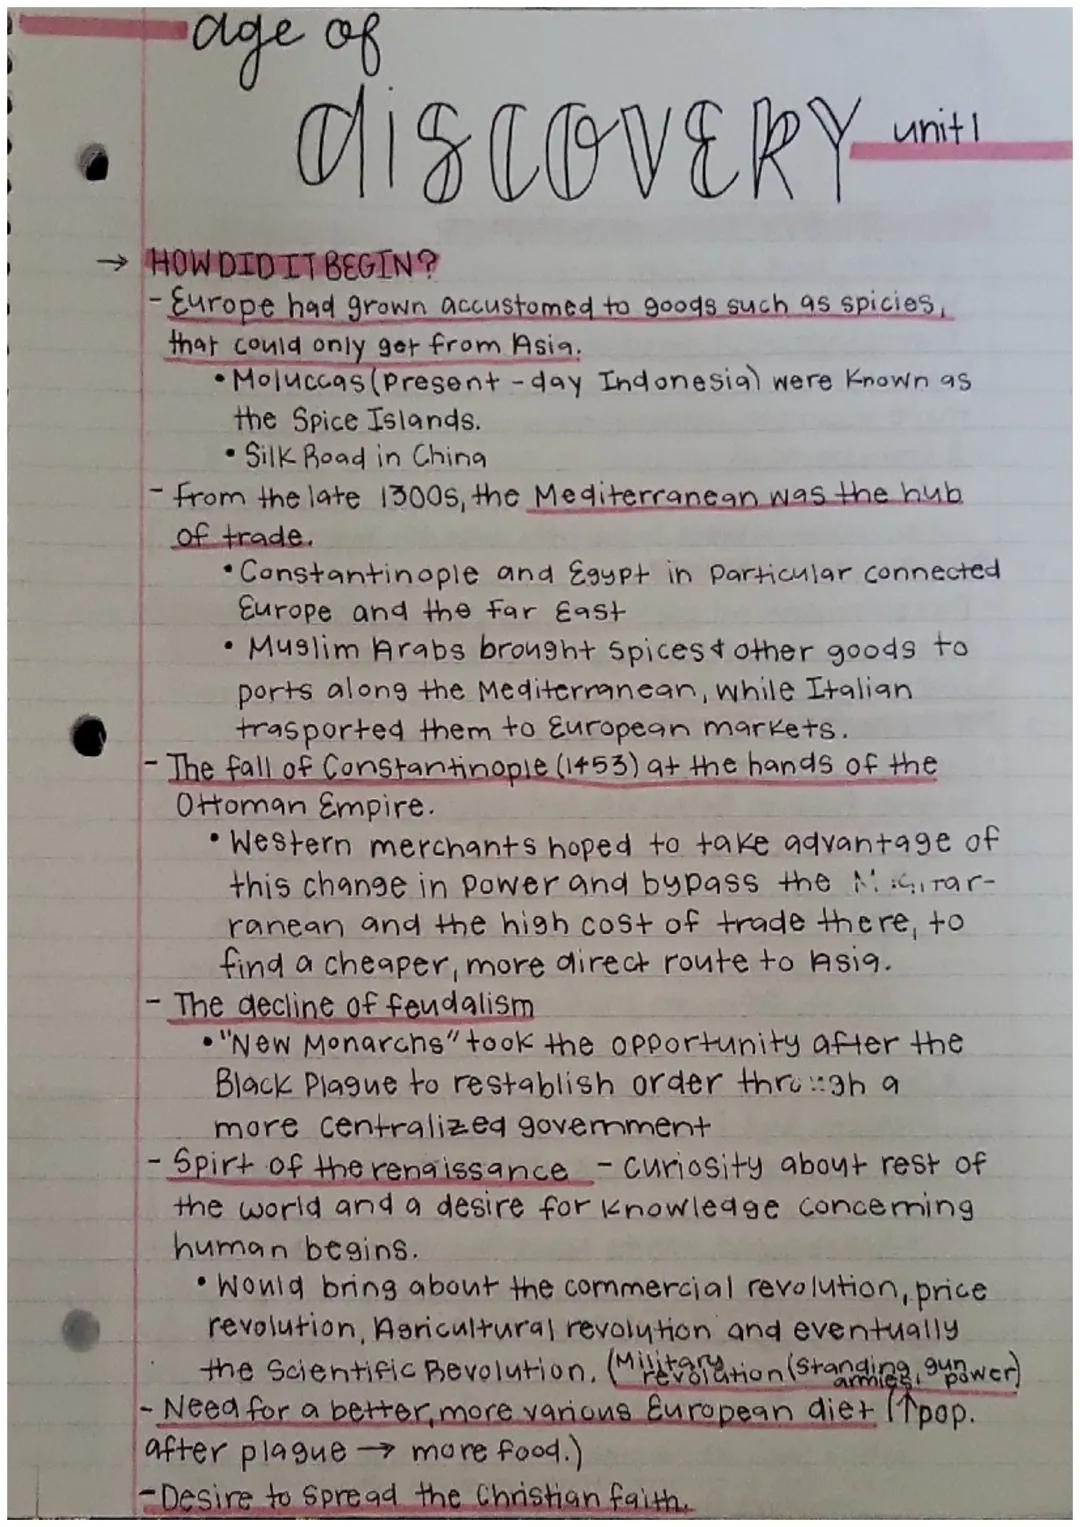 age of
dISCOVERY unit 1
→ HOW DID IT BEGIN?
- Europe had grown accustomed to goods such as spicies,
that could only get from Asia.
• Moluccas (Present-day Indonesia) were known as
the Spice Islands.
• Silk Road in China
- From the late 1300s, the Mediterranean was the hub
of trade.
• Constantinople and Egypt in particular connected
Europe and the Far East
• Muslim Arabs brought spices & other goods to
ports along the Mediterranean, while Italian
trasported them to European markets.
- The fall of Constantinople (1453) at the hands of the
Ottoman Empire.
• Western merchants hoped to take advantage of
this change in power and bypass the
ranean and the high cost of trade there, to
find a cheaper, more direct route to Asia.
- The decline of feudalism
• "New Monarchs" took the opportunity after the
Black Plague to restablish order through a
more centralized government
- Spirt of the renaissance - curiosity about rest of
the world and a desire for knowledge concerning
human begins.
• Would bring about the commercial revolution, price
revolution, Agricultural revolution and eventually
the Scientific Revolution. (Military revolution (Standing armies, gun power)
- Need for a better, more various European diet (↑pop.
after plague → more food.)
- Desire to spread the Christian faith.